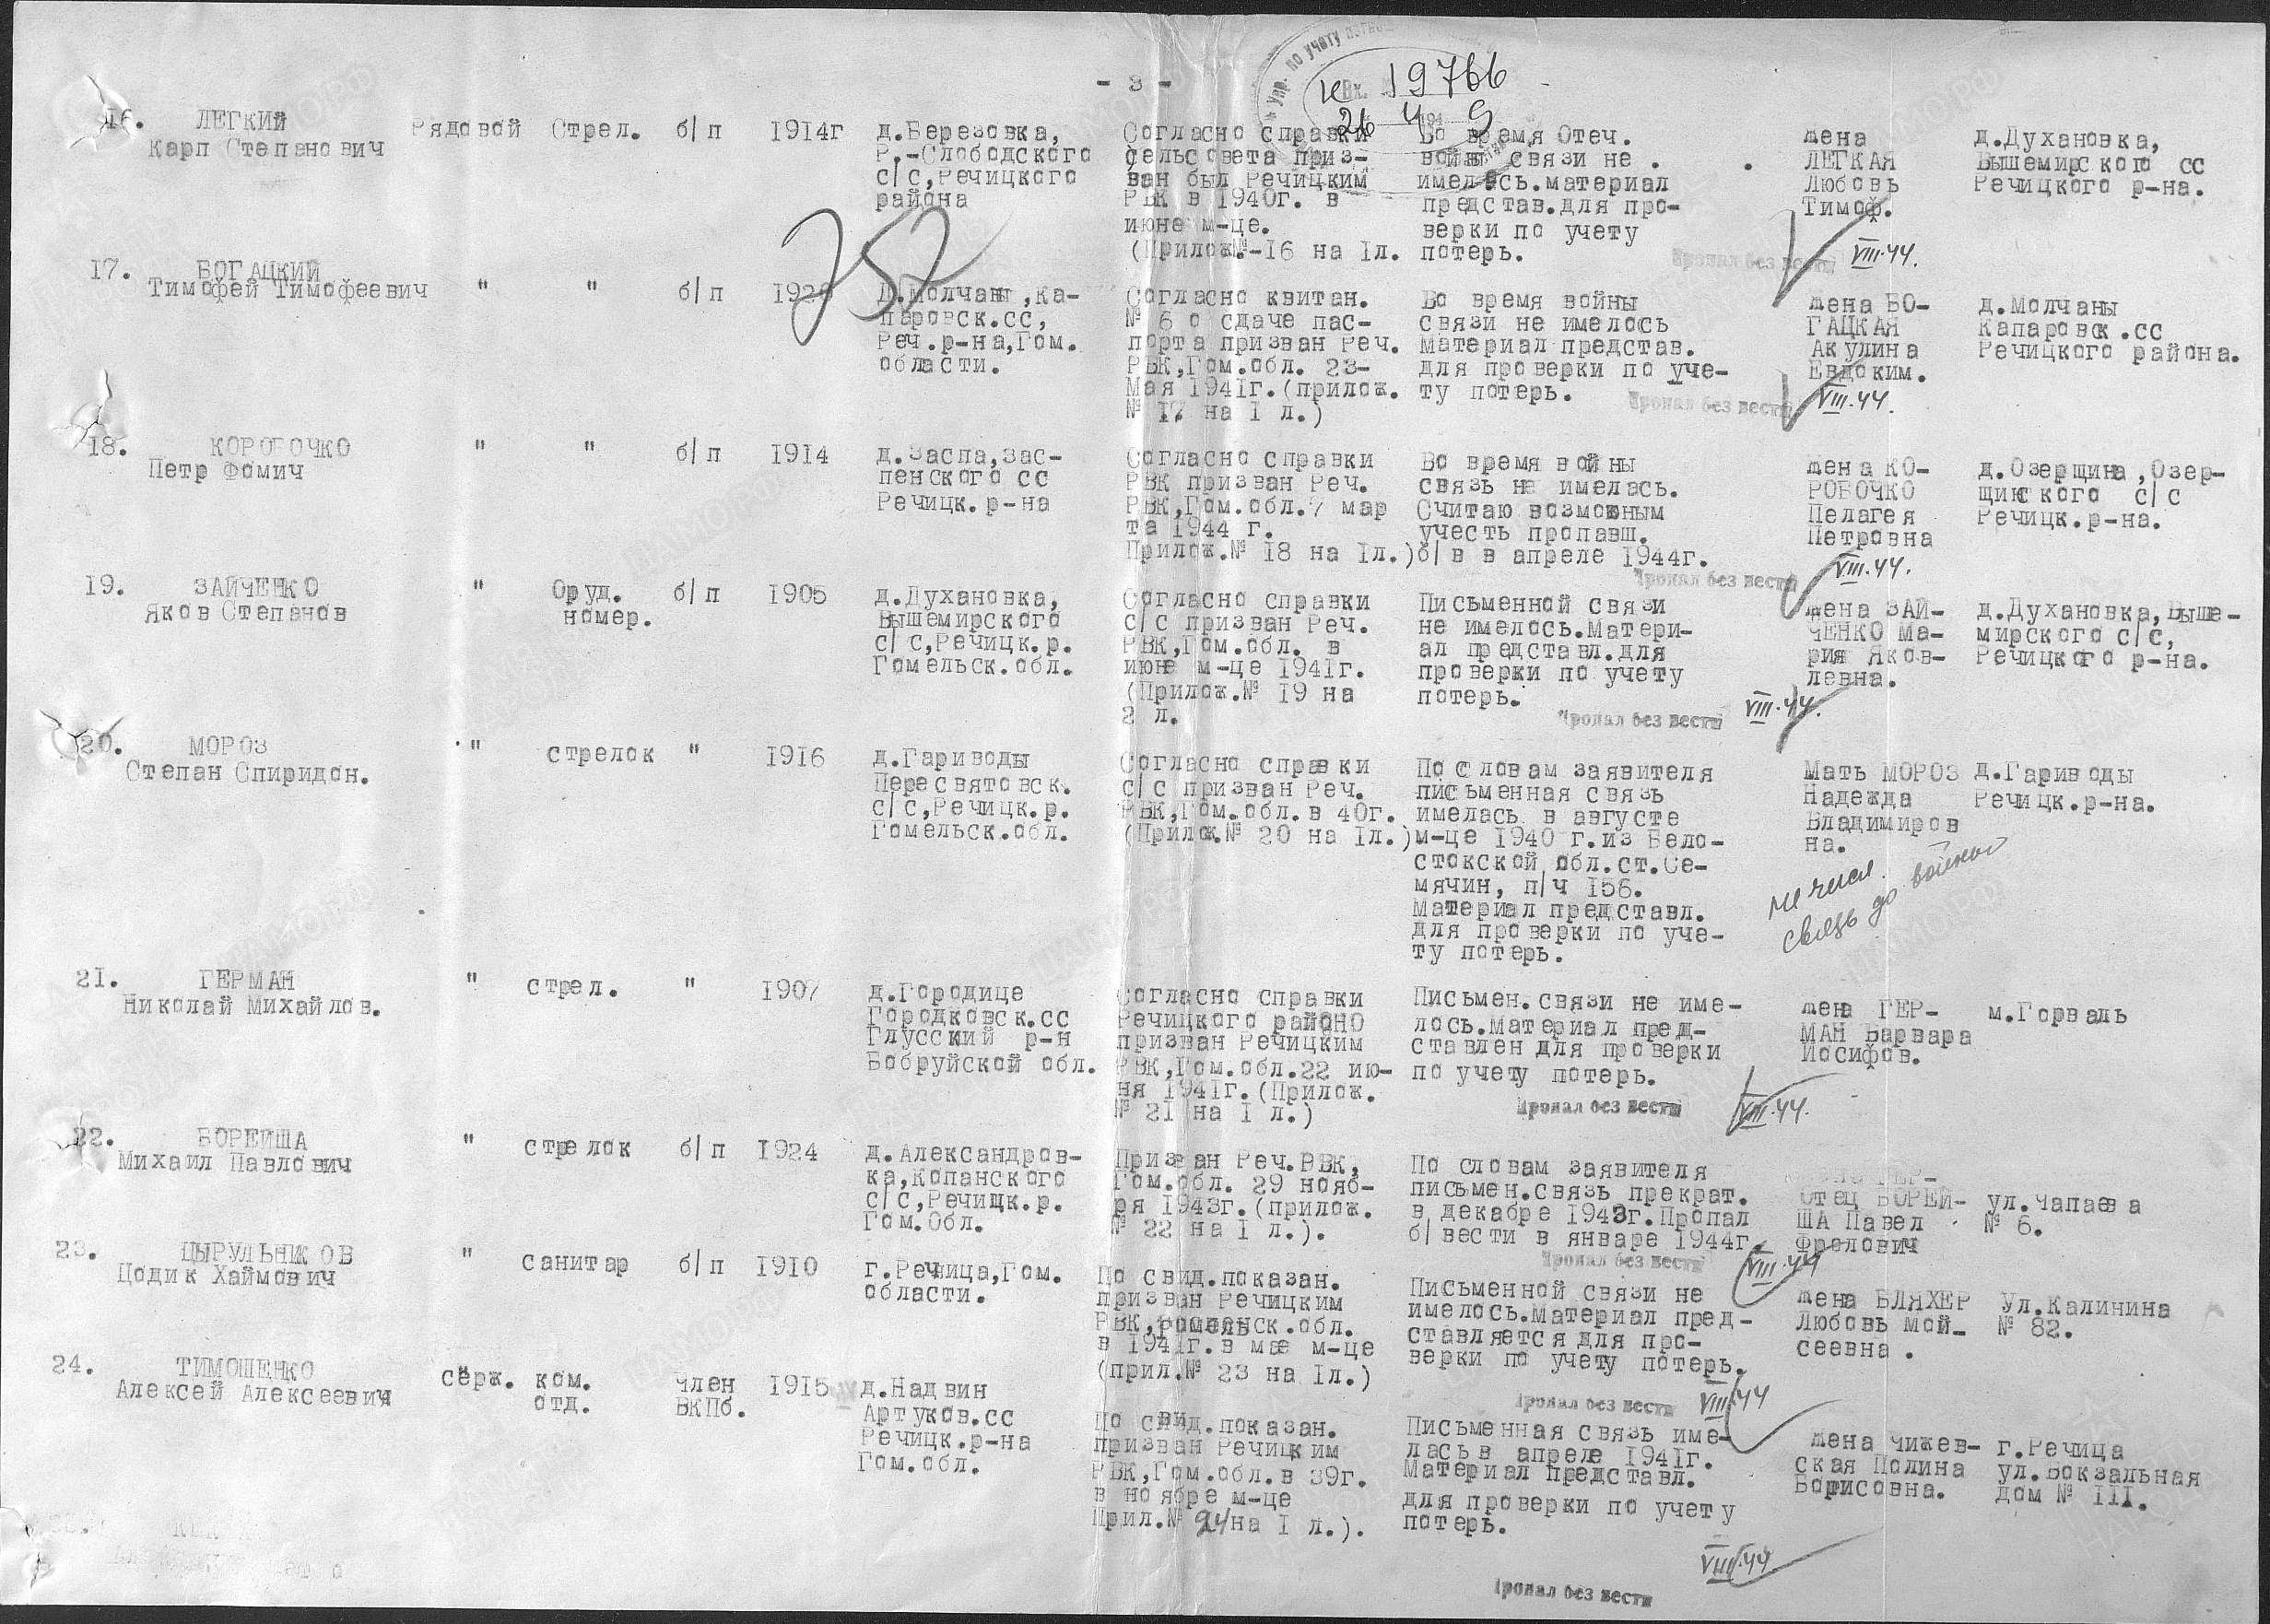 - 3 -
Упр. по учету
Вх. 19766
26 4 194 9
16. ЛЕГКИЙ
Карп Степанович
Рядовой Стрел. б/п 1914г
д.Березовка,
Р.-Слободского
с/с,Речицкого
района
Согласно справки
сельсовета приз-
ван был Речицким
РВК в 1940г. в
июне м-це.
(Прилож.№-16 на 1л.
Во время Отеч.
войны связи не
имелась.материал
представ.для про-
верки по учету
потерь.
Пропал без вести
VIII.44.
жена
ЛЕГКАЯ
Любовь
Тимоф.
д.Духановка,
Вышемирского сс
Речицкого р-на.
252
17. БОГАЦКИЙ
Тимофей Тимофеевич
" " б/п
д.Молчаны,Ка-
паровск.сс,
Реч.р-на,Гом.
области.
Согласно квитан.
№ 6 о сдаче пас-
порта призван Реч.
РВК,Гом.обл. 23-
Мая 1941г.(прилож.
№ 17 на 1 л.)
Во время войны
связи не имелось
Материал представ.
для проверки по уче-
ту потерь.
Пропал без вести
VIII.44.
жена БО-
ГАЦКАЯ
Акулина
Евдоким.
д.Молчаны
Капаровск.сс
Речицкого района.
18. КОРОБОЧКО
Петр Фомич
" " б/п 1914
д.Заспа,Зас-
пенского сс
Речицк.р-на
Согласно справки
РВК призван Реч.
РВК,Гом.обл.7 мар
та 1944 г.
Прилож.№ 18 на 1л.)
Во время войны
связь не имелась.
Считаю возможным
учесть пропавш.
б/в в апреле 1944г.
Пропал без вести
VIII.44.
жена КО-
РОБОЧКО
Пелагея
Петровна
д.Озерщина,Озер-
щинского с/с
Речицк.р-на.
19. ЗАЙЧЕНКО
Яков Степанов
" Оруд.
номер.
б/п 1905
д.Духановка,
Вышемирского
с/с,Речицк.р.
Гомельск.обл.
Согласно справки
с/с призван Реч.
РВК,Гом.обл. в
июне м-це 1941г.
(Прилож.№ 19 на
2 л.
Письменной связи
не имелось.Матери-
ал представл.для
проверки по учету
потерь.
Пропал без вести
VIII.44.
жена ЗАЙ-
ЧЕНКО Ма-
рия Яков-
левна.
д.Духановка,Выше-
мирского с/с,
Речицкого р-на.
20. МОРОЗ
Степан Спиридон.
" стрелок " 1916
д.Гариводы
Пересвятовск.
с/с,Речицк.р.
Гомельск.обл.
Согласно справки
с/с призван Реч.
РВК,Гом.обл.в 40г.
(Прилож.№ 20 на 1л.)
По словам заявителя
письменная связь
имелась в августе
м-це 1940 г.из Бело-
стокской обл.ст.Се-
мячин, п/ч 156.
Материал представл.
для проверки по уче-
ту потерь.
Мать МОРОЗ
Надежда
Владимиров
на.
д.Гариводы
Речицк.р-на.
не числ.
связь до войны
21. ГЕРМАН
Николай Михайлов.
" стрел. " 1907
д.Городице
Городковск.сс
Глусский р-н
Бобруйской обл.
Согласно справки
Речицкого районо
призван Речицким
РВК,Гом.обл.22 ию-
ня 1941г.(Прилож.
№ 21 на 1 л.)
Письмен.связи не име-
лось.Материал пред-
ставлен для проверки
по учету потерь.
Пропал без вести
VIII.44.
жена ГЕР-
МАН Варвара
Иосифов.
м.Горваль
22. БОРЕЙША
Михаил Павлович
" стрелок б/п 1924
д.Александров-
ка,Копанского
с/с,Речицк.р.
Гом.Обл.
Призван Реч.РВК,
Гом.обл. 29 нояб-
ря 1943г.(прилож.
№ 22 на 1 л.).
По словам заявителя
письмен.связь прекрат.
в декабре 1943г.Пропал
б/вести в январе 1944г.
Пропал без вести
VIII.44
отец БОРЕЙ-
ША Павел
Фролович
ул.Чапаева
№ 6.
23. ЦЫРУЛЬНИКОВ
Цодик Хаймович
" санитар б/п 1910
г.Речица,Гом.
области.
По свид.показан.
призван Речицким
РВК,Гомельск.обл.
в 1941г.в мае м-це
(прил.№ 23 на 1л.)
Письменной связи не
имелось.Материал пред-
ставляется для про-
верки по учету потерь.
Пропал без вести
VIII.44
жена БЛЯХЕР
Любовь Мой-
сеевна.
Ул.Калинина
№ 82.
24. ТИМОШЕНКО
Алексей Алексеевич
серж. ком.
отд.
член
ВКПб.
1915
д.Надвин
Артуков.сс
Речицк.р-на
Гом.обл.
По свид.показан.
призван Речицким
РВК,Гом.обл.в 39г.
в ноябре м-це
Прил.№ 24 на 1 л.).
Письменная связь име-
лась в апреле 1941г.
Материал представл.
для проверки по учету
потерь.
VIII.44
Пропал без вести
жена Чижев-
ская Полина
Борисовна.
г.Речица
ул.Вокзальная
дом № 111.